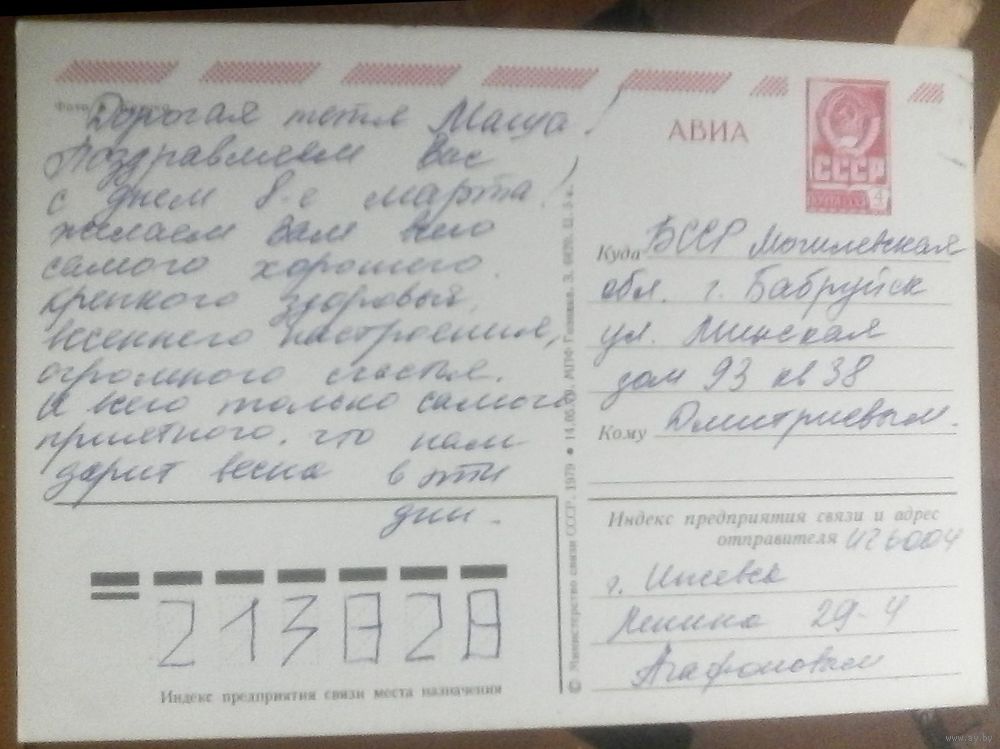 Дорогая тетя Маша!
Поздравляем вас
с днем 8-е марта!
желаем вам всего
самого хорошего.
крепкого здоровья,
весеннего настроения,
огромного счастья.
И всего только самого
приятного, что нам
дарит весна в эти
дни.
АВИА
СССР
4
Куда БССР Могилевская
обл. г. Бабруйск
ул. Минская
дом 93 кв 38
Кому Дмитриевым.
Индекс предприятия связи и адрес
отправителя 426004
г. Ижевск
Ленина 29-4
Агафоновым
© Министерство связи СССР. 1979 ● 14.05. МПФ Гознака. З. Ц. 5 к.
213828
Индекс предприятия связи места назначения
www.ay.by